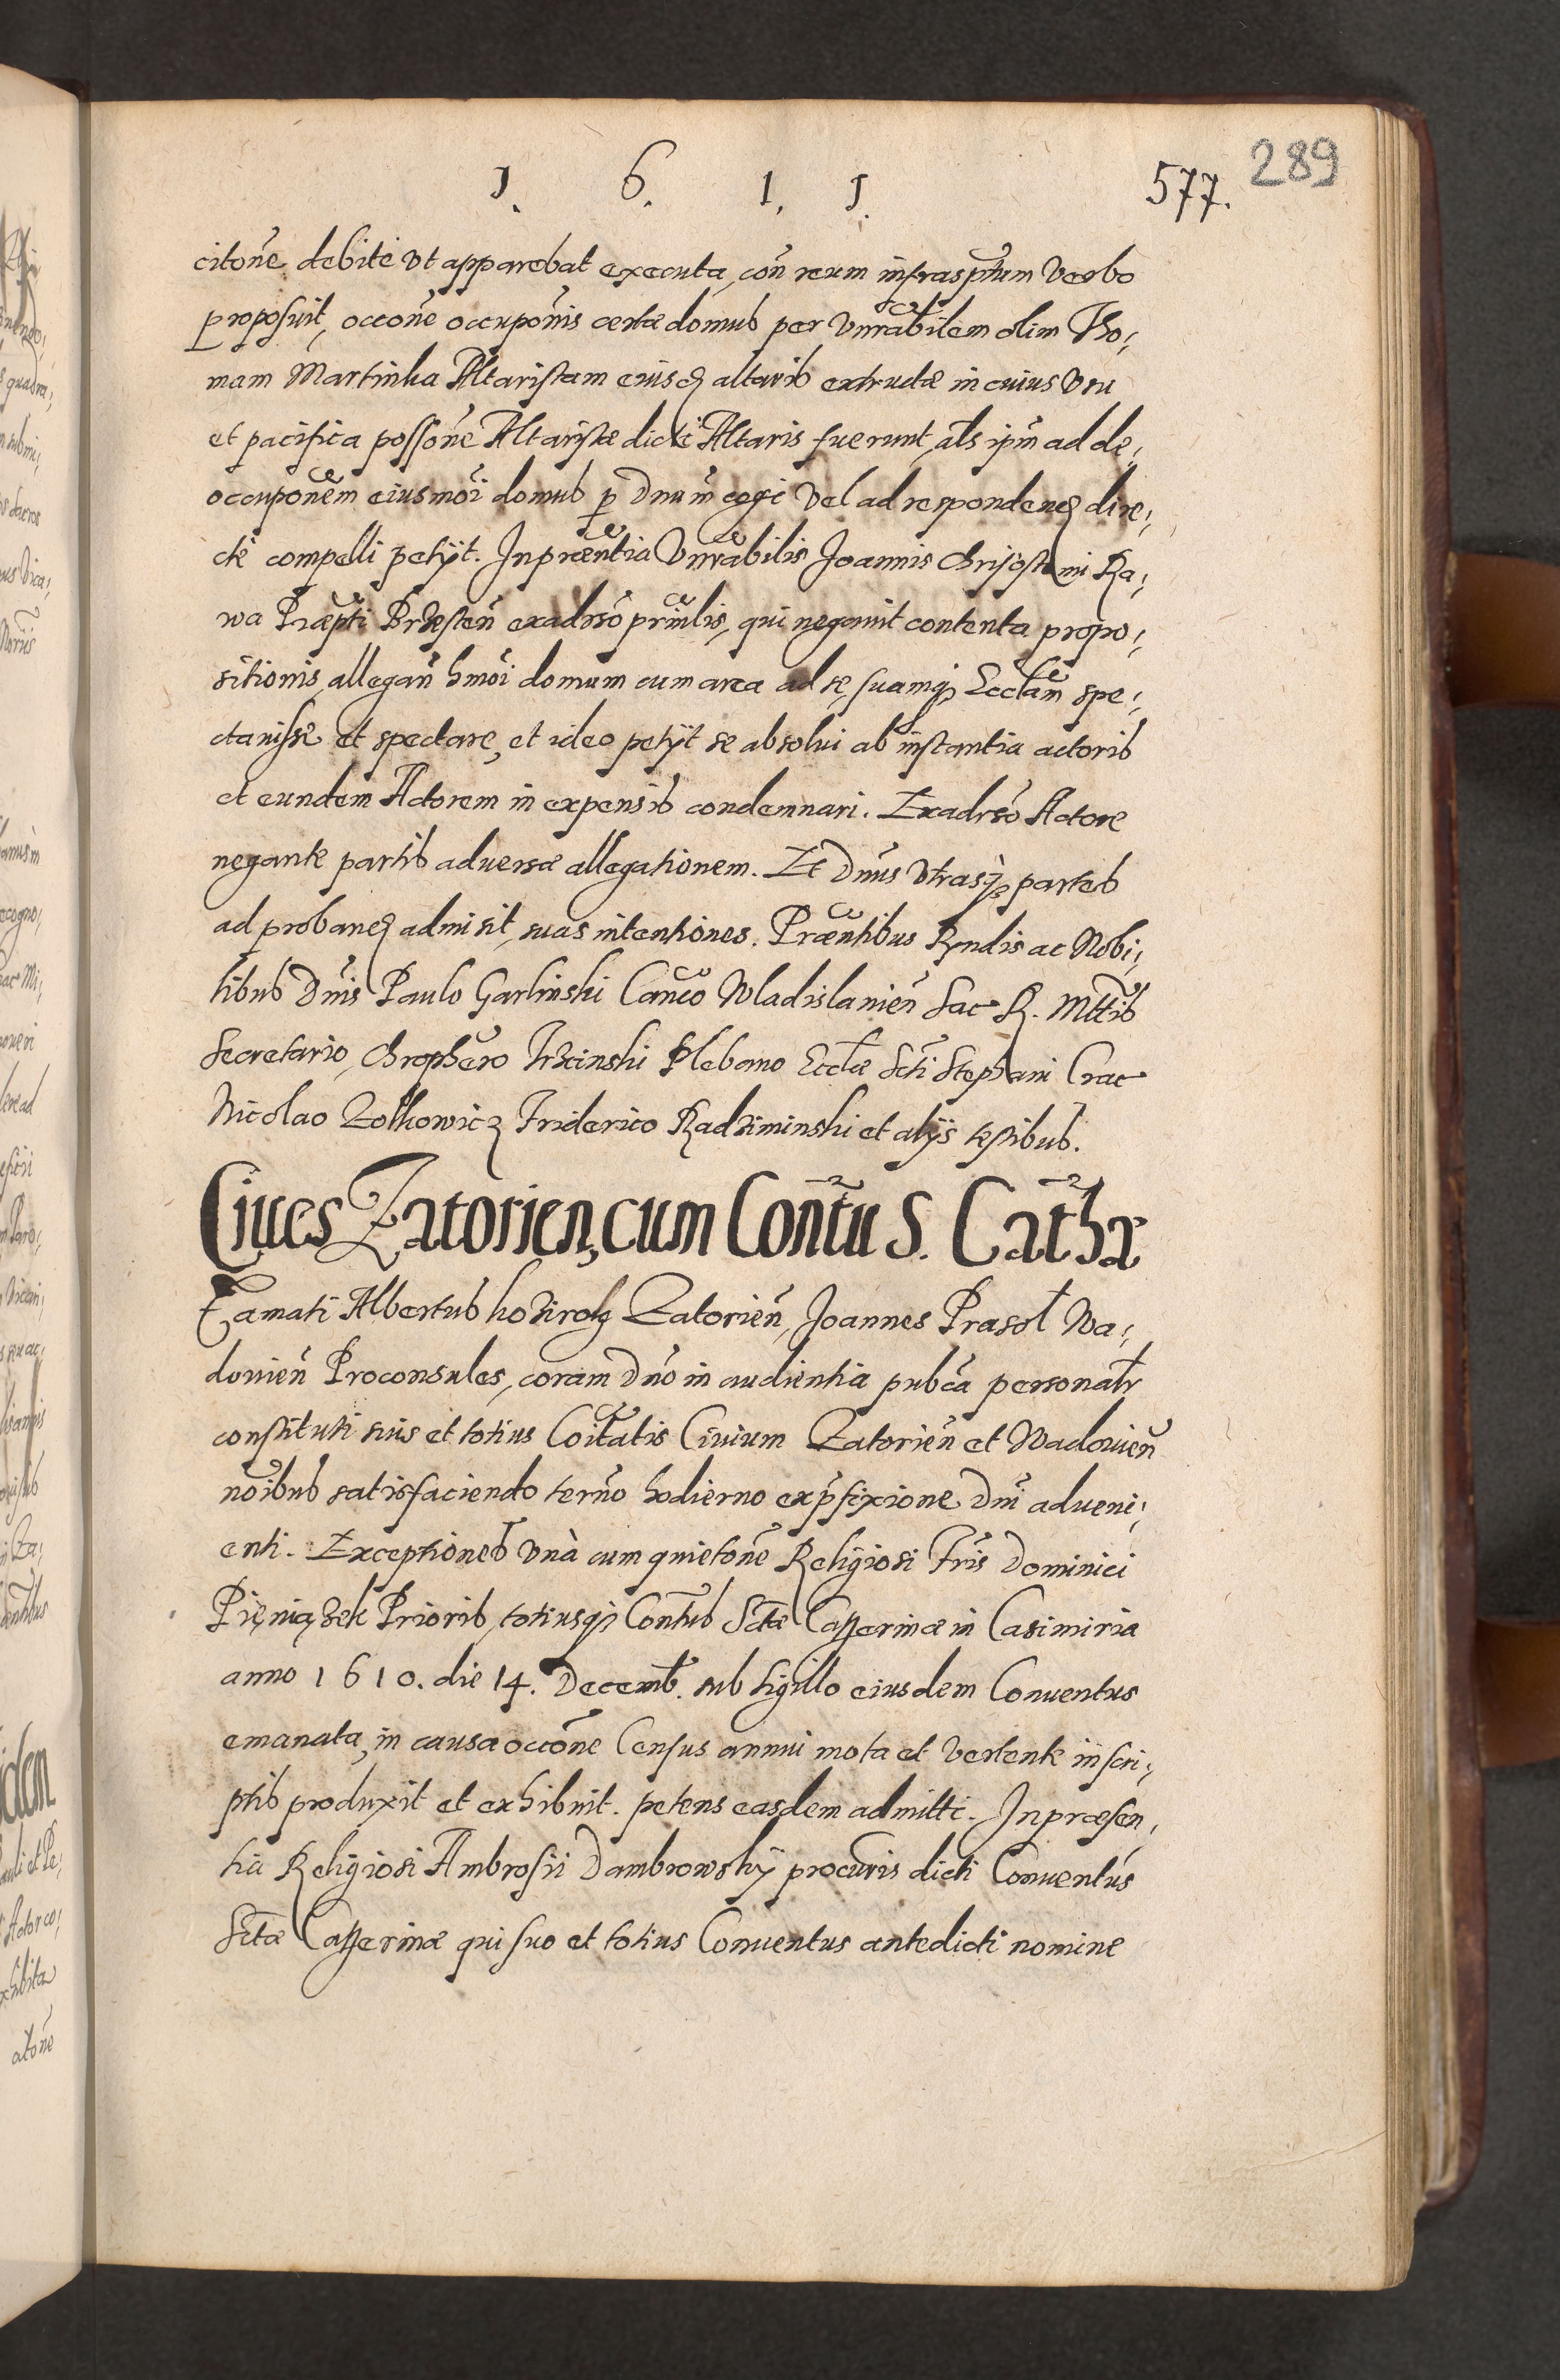 1. 6. 1. 1. 577. 289
citoñe debite vt apparebat executa, coñ reum infrasp̃tum verbo
proposuit, occoñe occupoñis certæ domus per Vñrabilem olim Tho¡
mam Martinka Altaristam eiusd altaris extructæ in cuius vsu
et pacifica possoñe Altaristæ dicti Altaris fuerunt, als ip̃m ad de¡
occupoñem eiusmoi domus p Dnum cogi vel ad respondend dire¡
cte compelli petijt. In præñtia Vñrabilis Joannis Chrisostomi Ra¡
wa Præpti Brzesteñ exadrso prinlis, qui negauit contenta propo¡
sitionis, allegañ hmoi domum cum area ad se, suamq Eccl̃am spe¡
ctauisse et spectare, et ideo petijt se absolui ab instantia actoris
et eundem Actorem in expensis condemnari. Exadrso Actore
negante partis aduersæ allegationem. Et Dñus vtrasq partes
ad proband admisit, suas intentiones. Præñtibus Rndis ac Nobi¡
libus Dñis Paulo Garlinski Cañco Wladislauieñ Sac R. Mttis
Secretario, Chrophero Trzcinski Plebano Eccl̃æ Scti Stephani Crac
Nicolao Zolkowicz Friderico Radziminski et alijs testibus.
Ciues Zatorien, cum Contu S. Cathæ
Famati Albertus kozirog Zatorieñ, Joannes Prasol Wa¡
douieñ Proconsules, coram Dño in audientia pubca personalr
constituti suis et totius Coitatis Ciuium Zatorieñ et Wadouieñ
noibus satisfaciendo termo hodierno ex p̃fixione Dñi adueni¡
enti. Exceptiones vnà cum quietoñe Religiosi Fris Dominici
Pieniązek Prioris, totiusq Contus Sctæ Catherinæ in Casimiria
anno 1610. die 14. Decemb. sub sigillo eiusdem Conuentus
emanata, in causa occoñe Census annui mota et vertente in scri¡
ptis produxit et exhibuit. petens easdem admitti. In præsen¡
tia Religiosi Ambrosii Dambrowskij procuris dicti Conuentus
Sctæ Catherinæ qui suo et totius Conuentus antedicti nomine